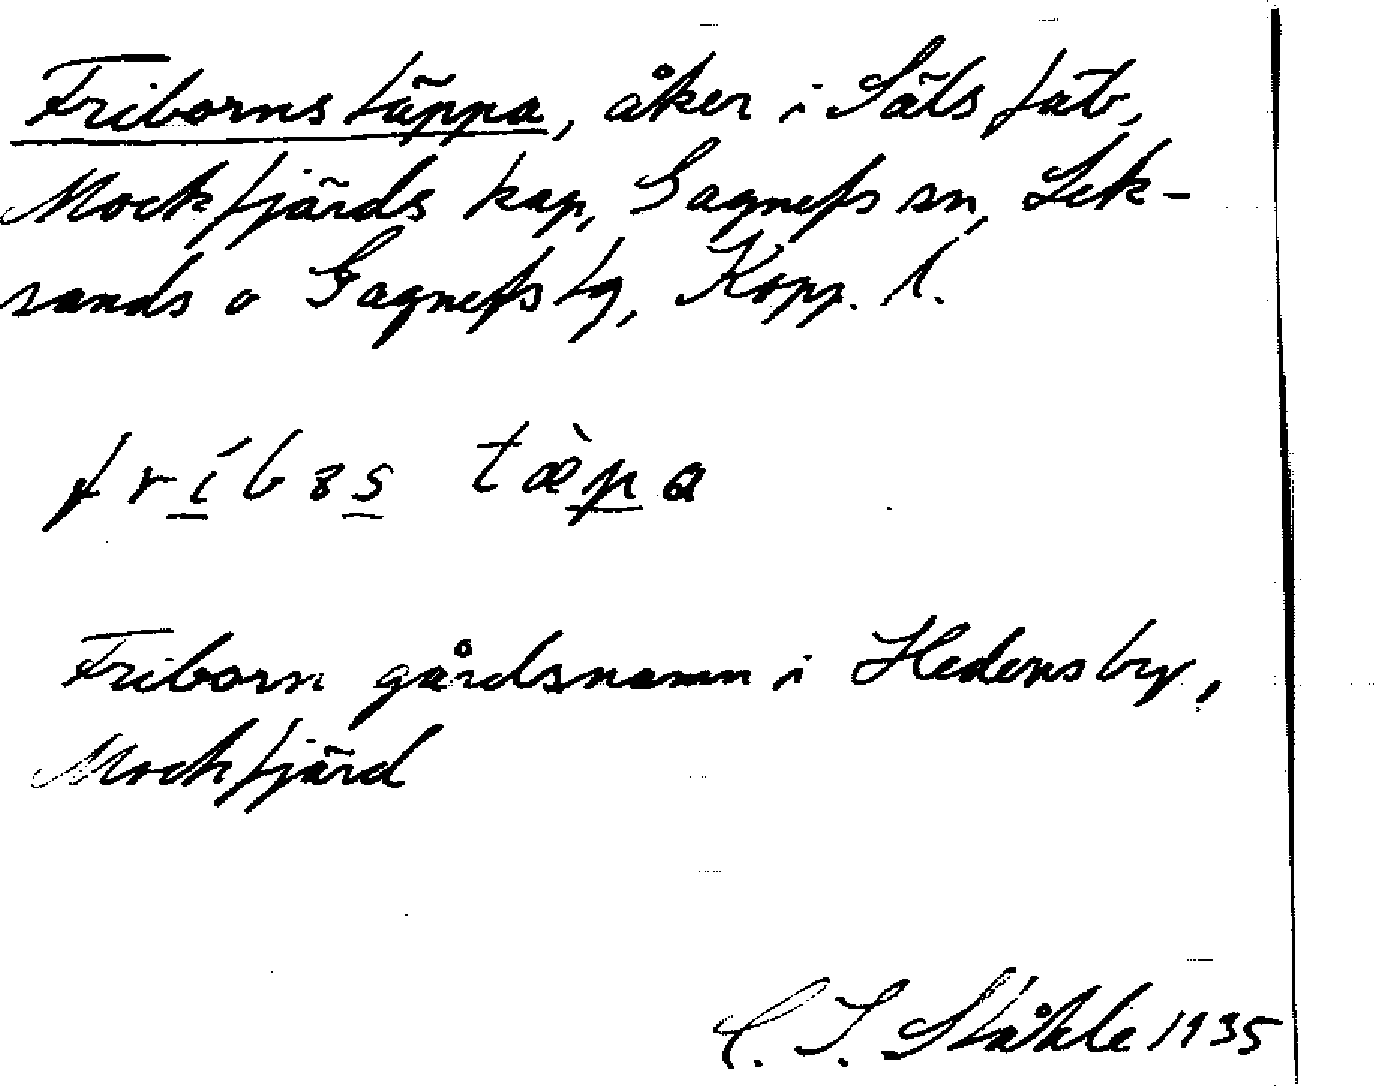 Friborns täppa, åker i Säls fäb,
Mockfjärds kap, Gagnefs sn, Lek-
sands o Gagnefs tg, Kopp. l.
fríbɜs tæ̀pa
Friborn gårdsnamn i Hedensby,
Mockfjärd
C. I. Ståhle 1935